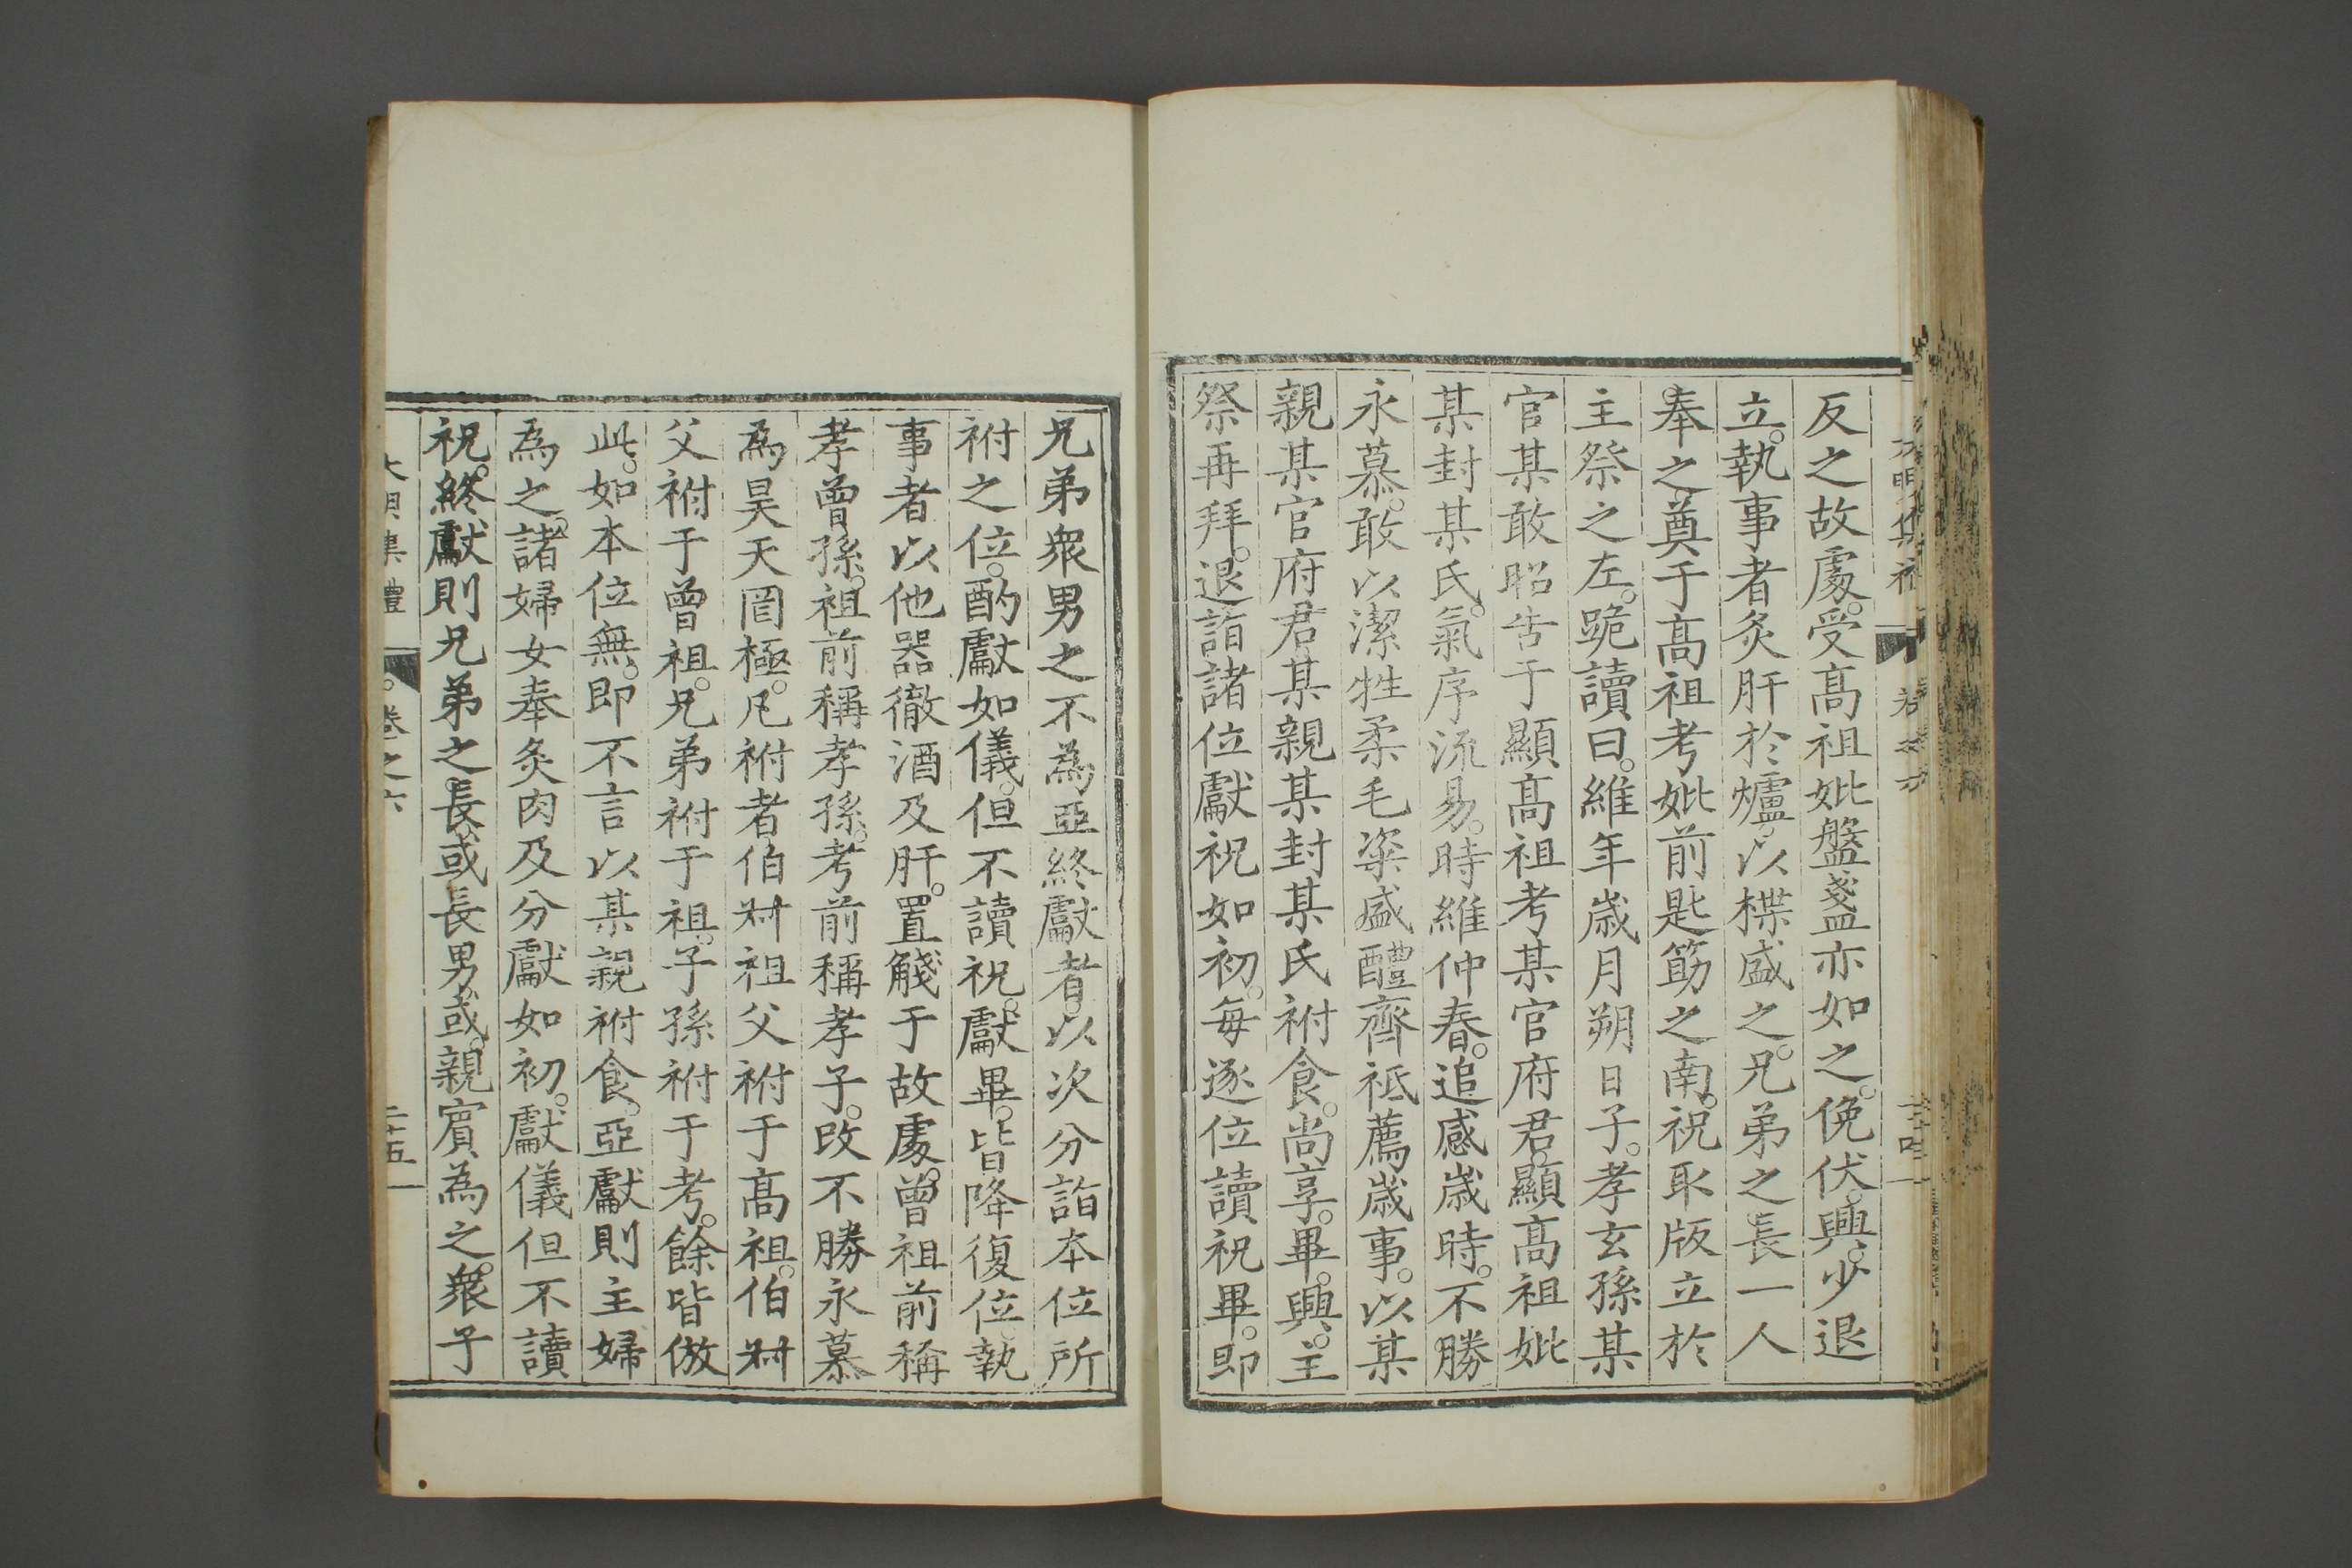 反之故處。受髙祖妣盤盞亦如之。俛伏。興。少退
立。執事者炙肝於爐。以楪盛之。兄弟之長一人
奉之。奠于髙祖考妣前匙筯之南。祝取版立於
主祭之左。跪讀曰。維年歳月朔日子。孝玄孫某
官某敢昭告于顯髙祖考某官府君。顯髙祖妣
某封某氏。氣序流易。時維仲春。追感歳時。不勝
永慕。敢以潔牲柔毛粢盛醴齊祗薦歳事。以某
親某官府君某親某封某氏祔食。尚享。畢。興。主
祭再拜。退詣諸位獻祝如初。每逐位讀祝畢。即
兄弟衆男之不為亞終獻者。以次分詣本位所
祔之位。酌獻如儀。但不讀祝。獻畢。皆降復位。執
事者以他器徹酒及肝。置觶于故處。曾祖前稱
孝曾孫。祖前稱孝孫。考前稱孝子。改不勝永慕
為昊天罔極。凡祔者伯叔祖父祔于髙祖。伯叔
父祔于曾祖。兄弟祔于祖。子孫祔于考。餘皆倣
此。如本位無。即不言以某親祔食。亞獻則主婦
為之。諸婦女奉炙肉及分獻如初。獻儀但不讀
祝。終獻則兄弟之長。或長男。或親賓為之。衆子
大明集禮 卷之六 二十五